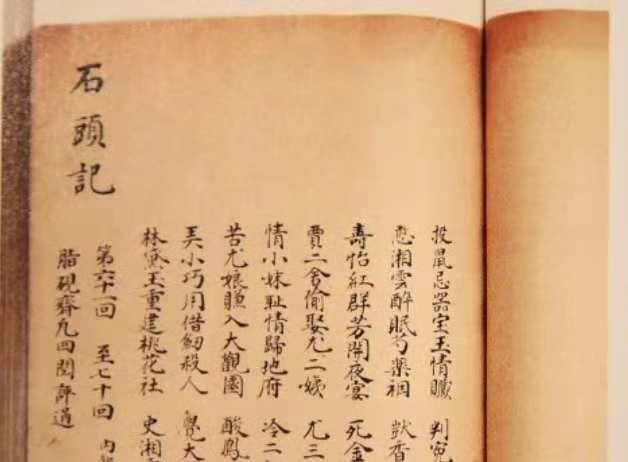 投鼠忌器宝玉情贓 判冤
憨湘雲醉眠芍藥裀 獃香
壽怡紅群芳開夜宴 死金
賈二舍偷娶尤二姨 尤三
情小妹耻情歸地府 冷二
苦尤娘賺入大觀園 酸鳳
弄小巧用借劍殺人 覺大
林黛玉重建桃花社 史湘
石頭記
第六十一回 至七十回 内
脂硯齋凡四閱評過